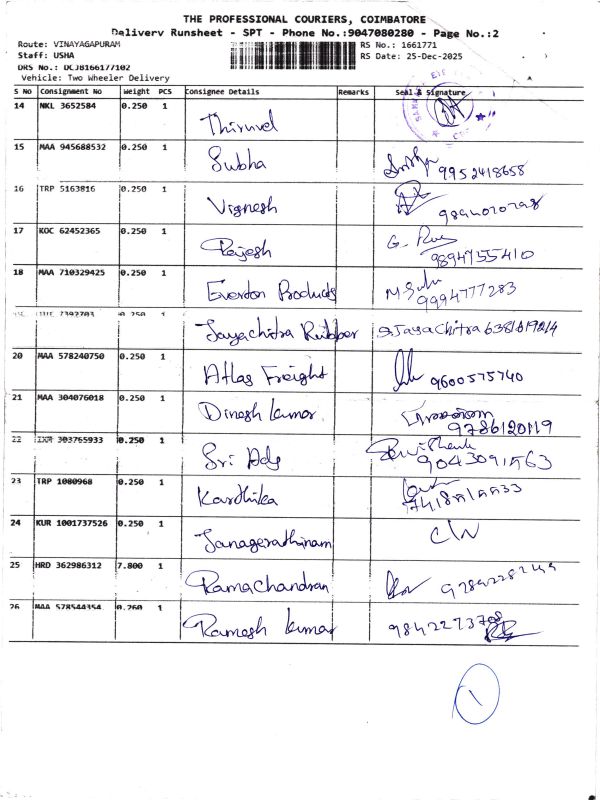 THE PROFESSIONAL COURIERS, COIMBATORE
Delivery Runsheet - SPT - Phone No.:9047080280 - Page No.:2
Route: VINAYAGAPURAM RS No.: 1661771
Staff: USHA RS Date: 25-Dec-2025
DRS No.: DCJ8166177102
Vehicle: Two Wheeler Delivery
S NO Consignment No Weight PCS Consignee Details Remarks Seal & Signature
14 NKL 3652584 0.250 1 Thiruvel
15 MAA 945688532 0.250 1 Subha 9952418658
16 TRP 5163816 0.250 1 Vignesh
17 KOC 62452365 0.250 1 Rajesh G. 9894755410
18 MAA 710329425 0.250 1 Everton Products 9994777283
0.250 1 Jayachitra Rubber Jayachitra
20 MAA 578240750 0.250 1 Atlas Freight 9600575740
21 MAA 304076018 0.250 1 Dinesh kumar 9786120119
22 303765933 0.250 1 Sri Ads
23 TRP 1080968 0.250 1 Karthika
24 KUR 1001737526 0.250 1 Janagerathinam
25 HRD 362986312 7.800 1 Ramachandran
26 MAA 578544354 0.260 1 Ramesh kumar
1